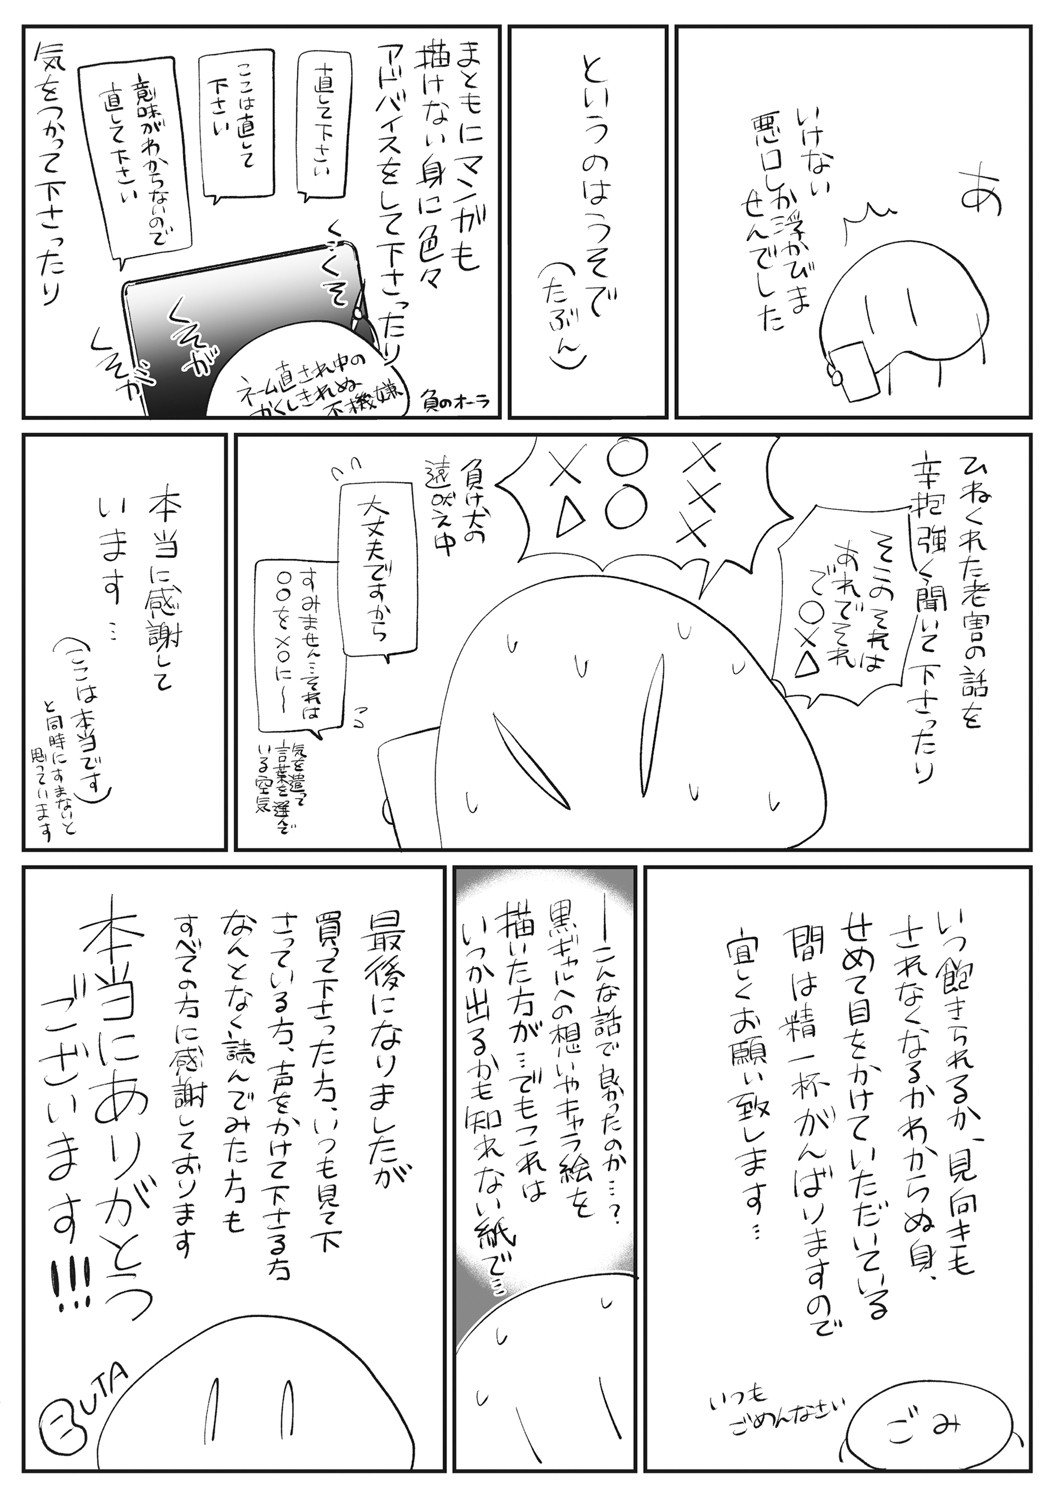 あ
いけない
悪口しか浮かびま
せんでした
というのはうそで
(たぶん)
まともにマンガも
描けない身に色々
アドバイスをして下さったり
直して下さい
ここは直して
下さい
意味がわからないので
直して下さい
気をつかって下さったり
くっくそ
くそが
くそがっ
ネーム直され中の
かくしきれぬ
不機嫌
負のオーラ
ひねくれた老害の話を
辛抱強く聞いて下さったり
そこのそれは
あれでそれ
で○×△
×××
○○
×△
負け犬の
遠吠え中
大丈夫ですから
すみません…それは
○○を×○に〜
気を遣って
言葉を選んで
いる空気
本当に感謝して
います…
(ここは本当です)
と同時にすまないと
思っています
いつ飽きられるか、見向きも
されなくなるかわからぬ身、
せめて目をかけていただいている
間は精一杯がんばりますので
宜しくお願い致します…
ごみ
いつも
ごめんなさい
―こんな話で良かったのか…?
黒ギャルへの想いやキャラ絵を
描いた方が…でもこれは
いつか出るかも知れない紙で…
最後になりましたが
買って下さった方、いつも見て下
さっている方、声をかけて下さる方
なんとなく読んでみた方も
すべての方に感謝しております
本当にありがとう
ございます!!!
BUTA